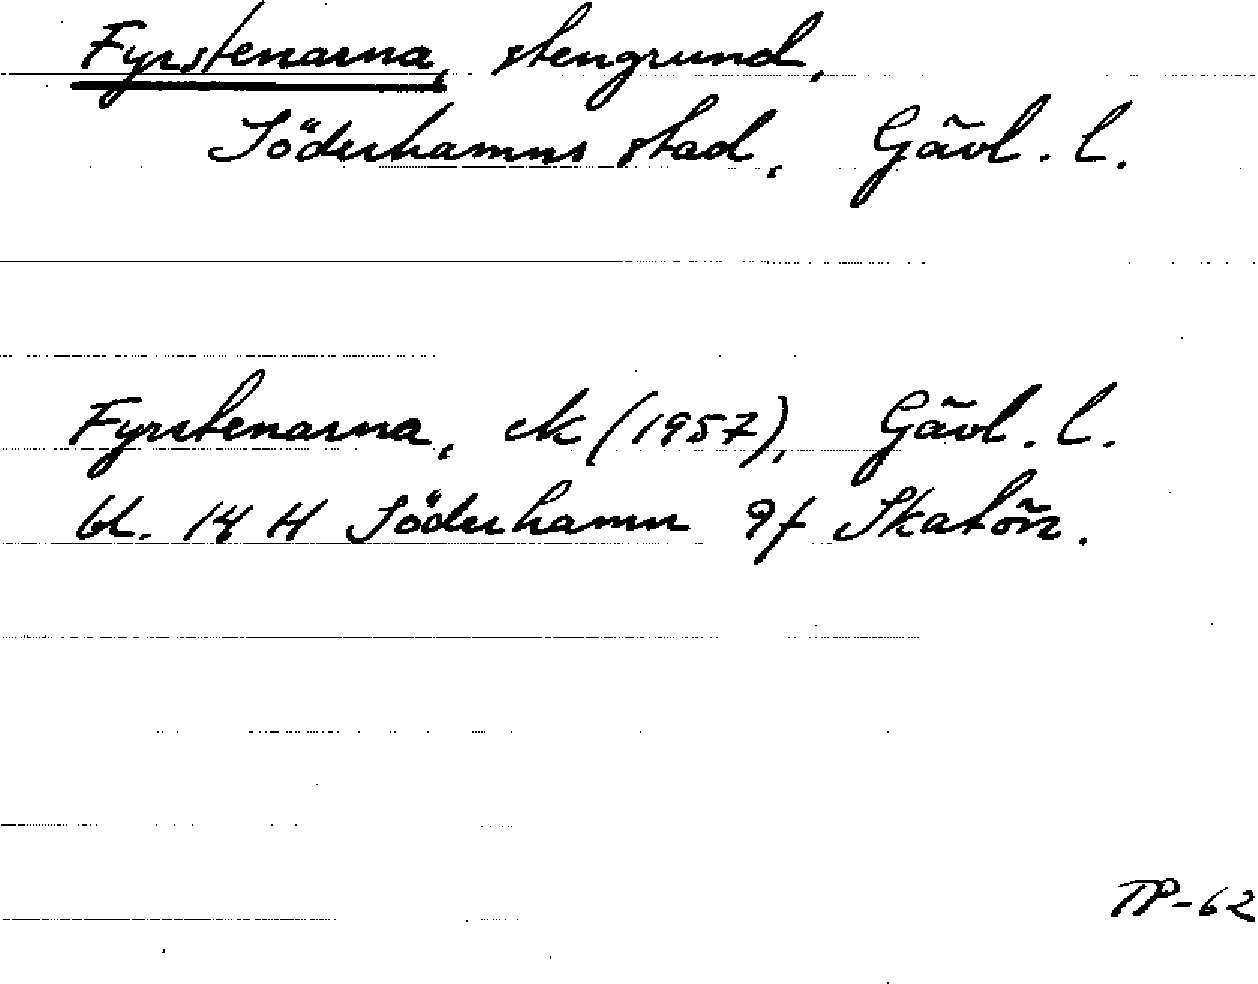 Fyrstenarna, stengrund,
Söderhamns stad, Gävl. l.
Fyrstenarna, ek (1957), Gävl. l.
bl. 14 H Söderhamn 9f Skatön.
TP-62